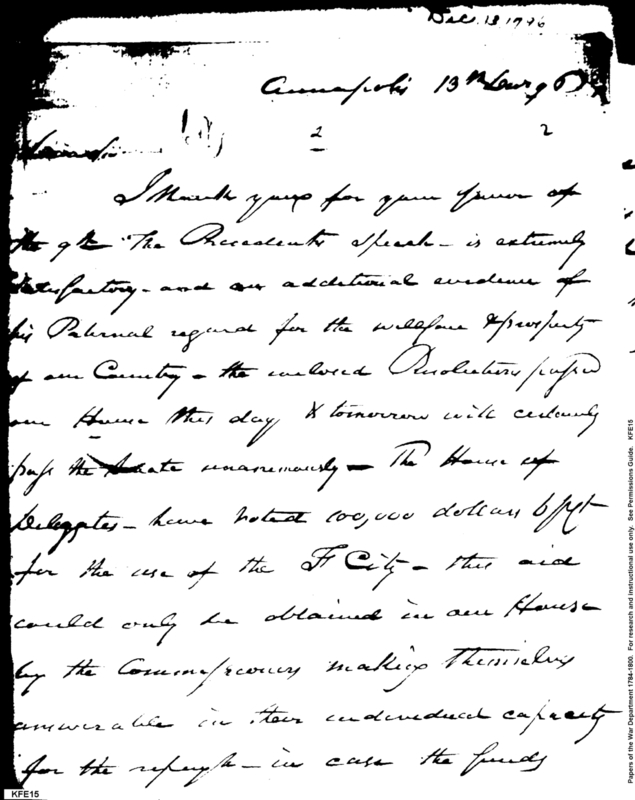 Decr. 13 1796
Annapolis 13th Decr 96
2 2
Dear Sir
I thank you for your favor of
the 9th The Precedents Speech - is extremely
Satisfactory - and an additional evidence of
his Paternal regard for the wellfare & prosperity
of our Country - the inclosed Resolutions passed
our House this day & tomorrow will certainly
pass the Senate unanimously - The House of
Delegates - have voted 100,000 dollars 6 pct
for the use of the F City - this aid
could only be obtained in our House
by the Commissioners making themselves
answerable in their individual capacity
for the - in case the funds
KFE15
Papers of the War Department 1784-1800. For research and instructional use only. See Permissions Guide. KFE15